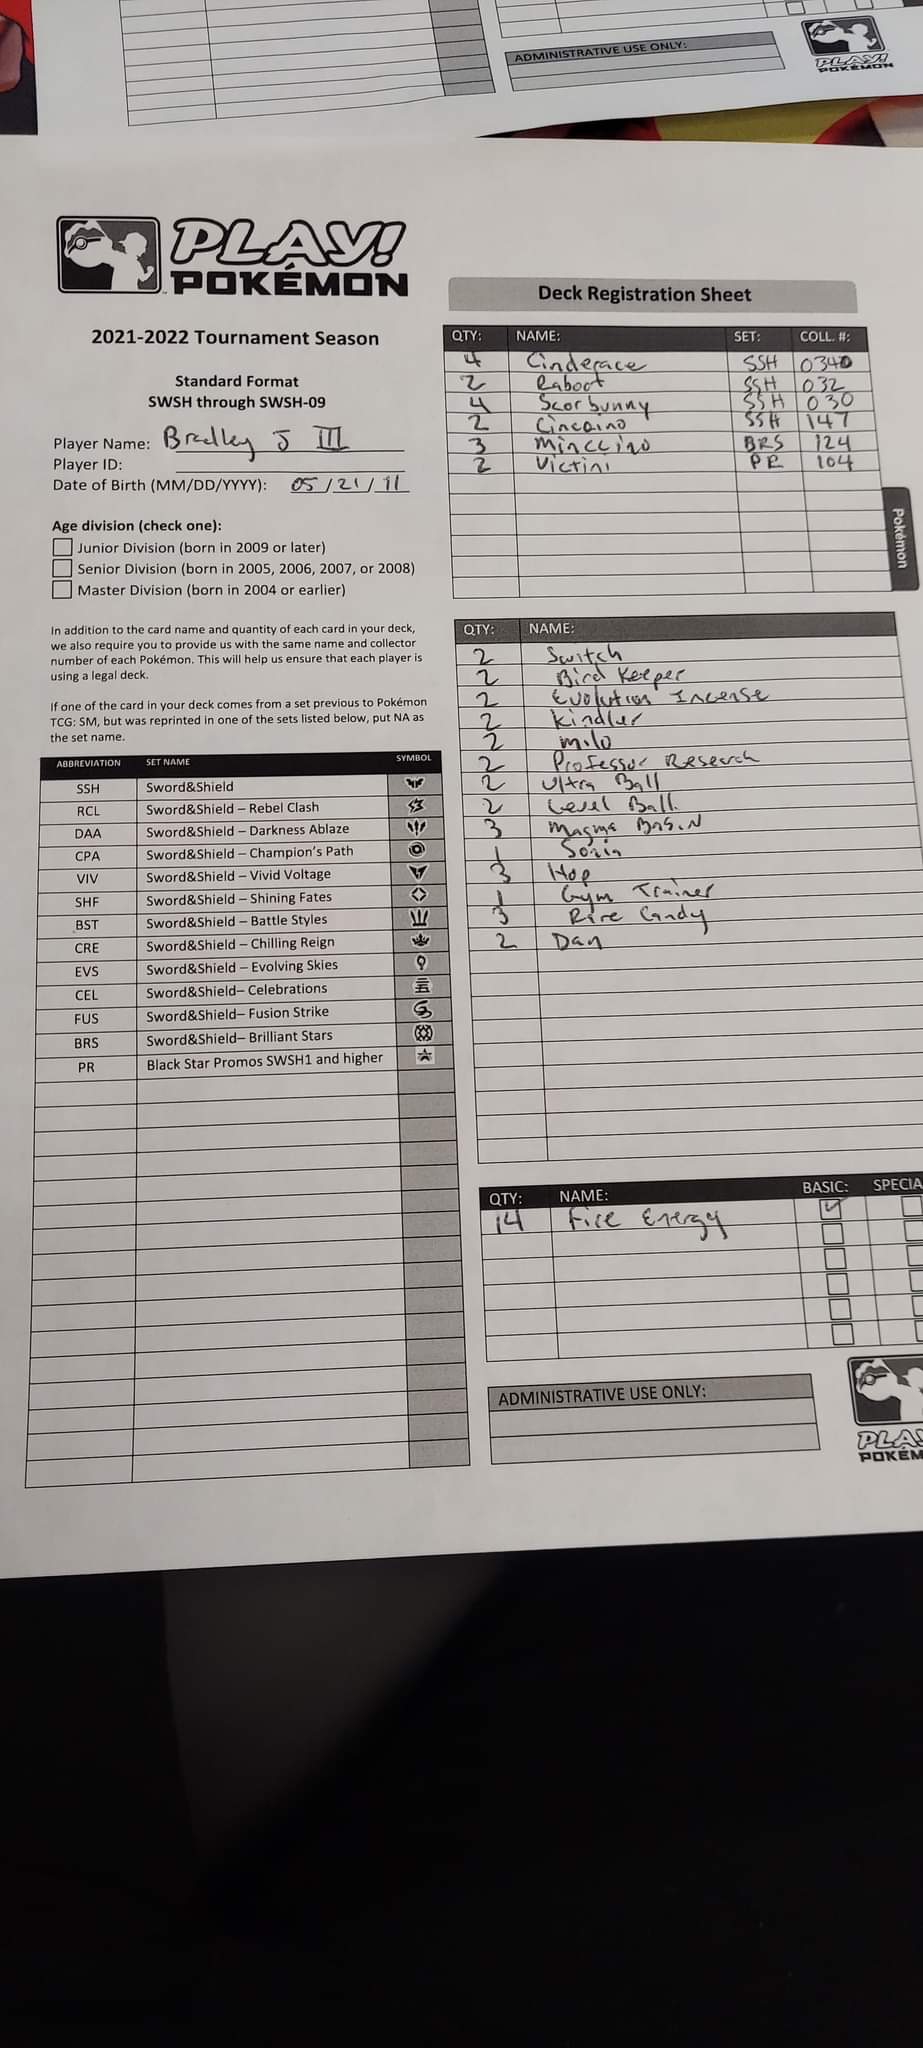 ADMINISTRATIVE USE ONLY:
PLAY!
POKÉMON
PLAY!
POKÉMON
2021-2022 Tournament Season
Standard Format
SWSH through SWSH-09
Player Name: Bradley J III
Player ID:
Date of Birth (MM/DD/YYYY): 05/21/11
Age division (check one):
Junior Division (born in 2009 or later)
Senior Division (born in 2005, 2006, 2007, or 2008)
Master Division (born in 2004 or earlier)
In addition to the card name and quantity of each card in your deck,
we also require you to provide us with the same name and collector
number of each Pokémon. This will help us ensure that each player is
using a legal deck.
If one of the card in your deck comes from a set previous to Pokémon
TCG: SM, but was reprinted in one of the sets listed below, put NA as
the set name.
ABBREVIATION SET NAME SYMBOL
SSH Sword&Shield
RCL Sword&Shield – Rebel Clash
DAA Sword&Shield – Darkness Ablaze
CPA Sword&Shield – Champion's Path
VIV Sword&Shield – Vivid Voltage
SHF Sword&Shield – Shining Fates
BST Sword&Shield – Battle Styles
CRE Sword&Shield – Chilling Reign
EVS Sword&Shield – Evolving Skies
CEL Sword&Shield– Celebrations
FUS Sword&Shield– Fusion Strike
BRS Sword&Shield– Brilliant Stars
PR Black Star Promos SWSH1 and higher
Deck Registration Sheet
QTY: NAME: SET: COLL. #:
4 Cinderace SSH 0340
2 Raboot SSH 032
4 Scorbunny SSH 030
2 Cinccino SSH 147
3 Minccino BRS 124
2 Victini PR 104
Pokémon
QTY: NAME:
2 Switch
2 Bird Keeper
2 Evolution Incense
2 Kindler
2 Milo
2 Professor Research
2 Ultra Ball
2 Level Ball
3 Magma Basin
1 Sonia
3 Hop
1 Gym Trainer
3 Rare Candy
2 Dan
QTY: NAME: BASIC: SPECIA
14 Fire Energy
ADMINISTRATIVE USE ONLY:
PLAY
POKÉM